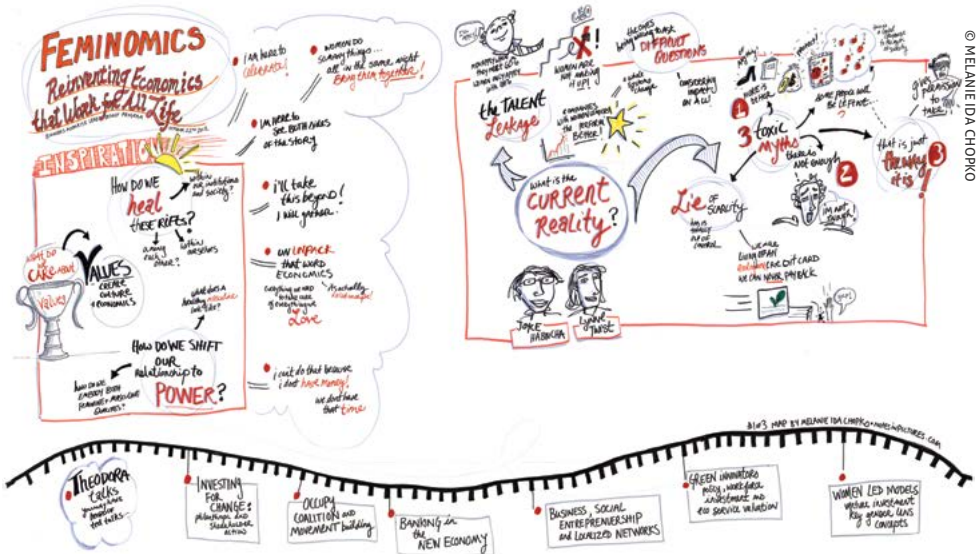 FEMINOMICS
Reinventing Economics
that Work for All Life
INSPIRATION
HOW DO WE
heal
these RIFTS?
within
our institutions
and society?
among
each
other?
within
ourselves
WHAT DO
WE
CARE ABOUT
Values
VALUES
CREATE
CULTURE
+ ECONOMICS
what does a
healthy masculine
look like?
HOW DO WE SHIFT
OUR
Relationship to
POWER?
HOW DO WE
EMBODY BOTH
FEMININE + MASCULINE
QUALITIES?
I AM HERE to
CELEBRATE!
WOMEN DO
so many things...
all in the same night
BRING THEM together!
I'M HERE to
SEE BOTH SIDES
OF the STORY
i'll take
this beyond!
I will gather.
UNPACK
that WORD
ECONOMICS
Everything we need
to take care
of everything we
Love
it's actually
i can't do that because
i don't have money!
we don't have
that time
the TALENT
Leakage
WOMEN ARE
NOT MAKING
IT UP!
CEO
COMPANIES
PERFORM
BETTER!
the ones
DIFFICULT
QUESTIONS
CONSIDERING
IMPACT
ON ALL!
a whole
systems
change
what is the
CURRENT
Reality?
JOKE
HABBEMA
LYNNE
TWIST
3 toxic
Myths
1
MORE IS
BETTER
SOME PEOPLE WILL
BE LEFT OUT
there is
NOT ENOUGH
2
I'M NOT
ENOUGH!
that is just
the way
it is!
3
gives
PERMISSION
TO
TAKE!
Lie OF
SCARCITY
this is
totally
out of
control
we are
LIVING OFF AN
CREDIT CARD
WE CAN NEVER PAY BACK
#1 OF 3 MAP BY MELANIE IDA CHOPKO • NOTESINPICTURES.COM
THEODORA
talks
young women
ted talks...
INVESTING
FOR
CHANGE:
philanthropic AND
shareholder
action
OCCUPY
COALITION AND
MOVEMENT building
BANKING in
the
NEW ECONOMY
BUSINESS, SOCIAL
ENTREPRENEURSHIP
and LOCALIZED NETWORKS
GREEN INNOVATORS
policy, workforce
investment and
eco service valuation
WOMEN LED MODELS
venture investment
key gender lens
concepts
© MELANIE IDA CHOPKO